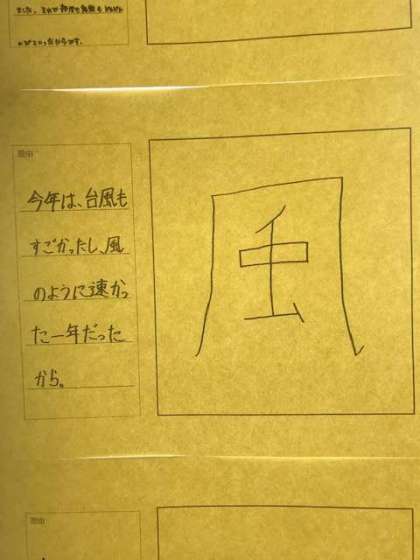 理由
今年は、台風も
すごかったし、風
のように速かっ
た一年だった
から。
風
理由